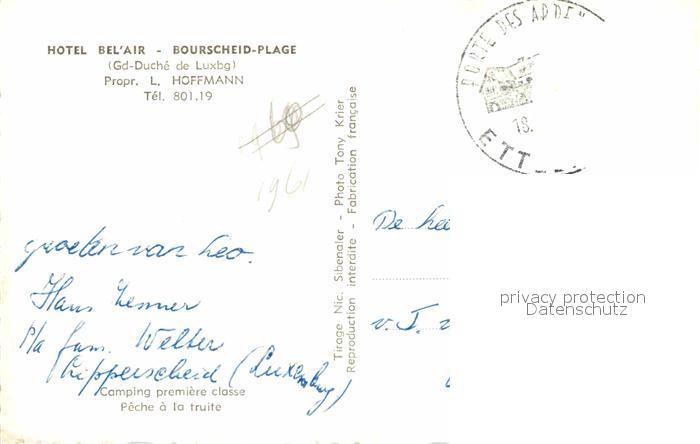 HOTEL BEL'AIR - BOURSCHEID-PLAGE
(Gd-Duché de Luxbg)
Propr. L. HOFFMANN
Tél. 801.19
PORTE DES ARDEN
18.
ETT
1961
Tirage Nic. Sibenaler - Photo Tony Krier
Reproduction interdite - Fabrication française
De hee
v. J. v
groeten van Leo.
Hans
p/a fam. Welter
Lipperscheid (Luxemburg)
Camping première classe
Pêche à la truite
privacy protection
Datenschutz